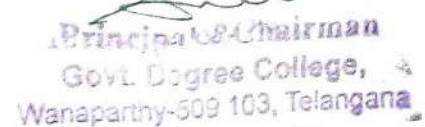 Principal & Chairman
Govt. Degree College,
Wanaparthy-509 103, Telangana